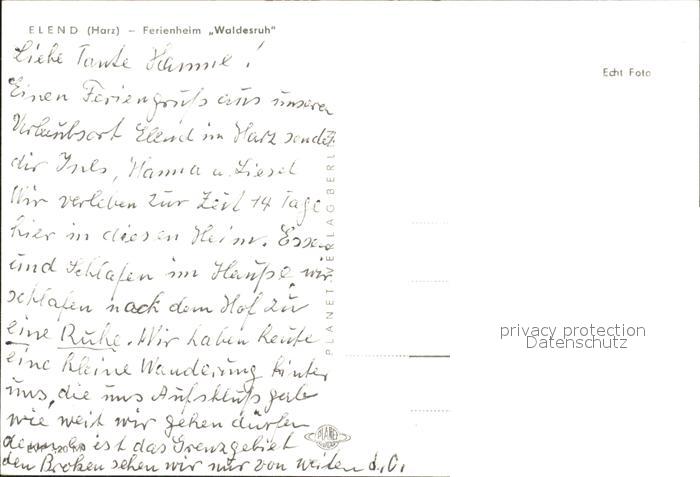 ELEND (Harz) – Ferienheim „Waldesruh"
Echt Foto
Liebe Tante Hanne!
Einen Feriengruß aus unseren
Urlaubsort Elend im Harz sendet
dir Ines, Hanna u. Liesel
Wir verleben zur Zeit 14 Tage
hier in diesen Heim. Essen
und Schlafen im Hauße, wir
schlafen nach dem Hof zu
eine Ruhe. Wir haben heute
eine kleine Wanderung hinter
uns, die uns Aufschluß gab
wie weit wir gehen dürfen
denn es ist das Grenzgebiet
den Broken sehen wir nur von weiten
PLANET-VERLAG BERLIN
PLANET
privacy protection
Datenschutz